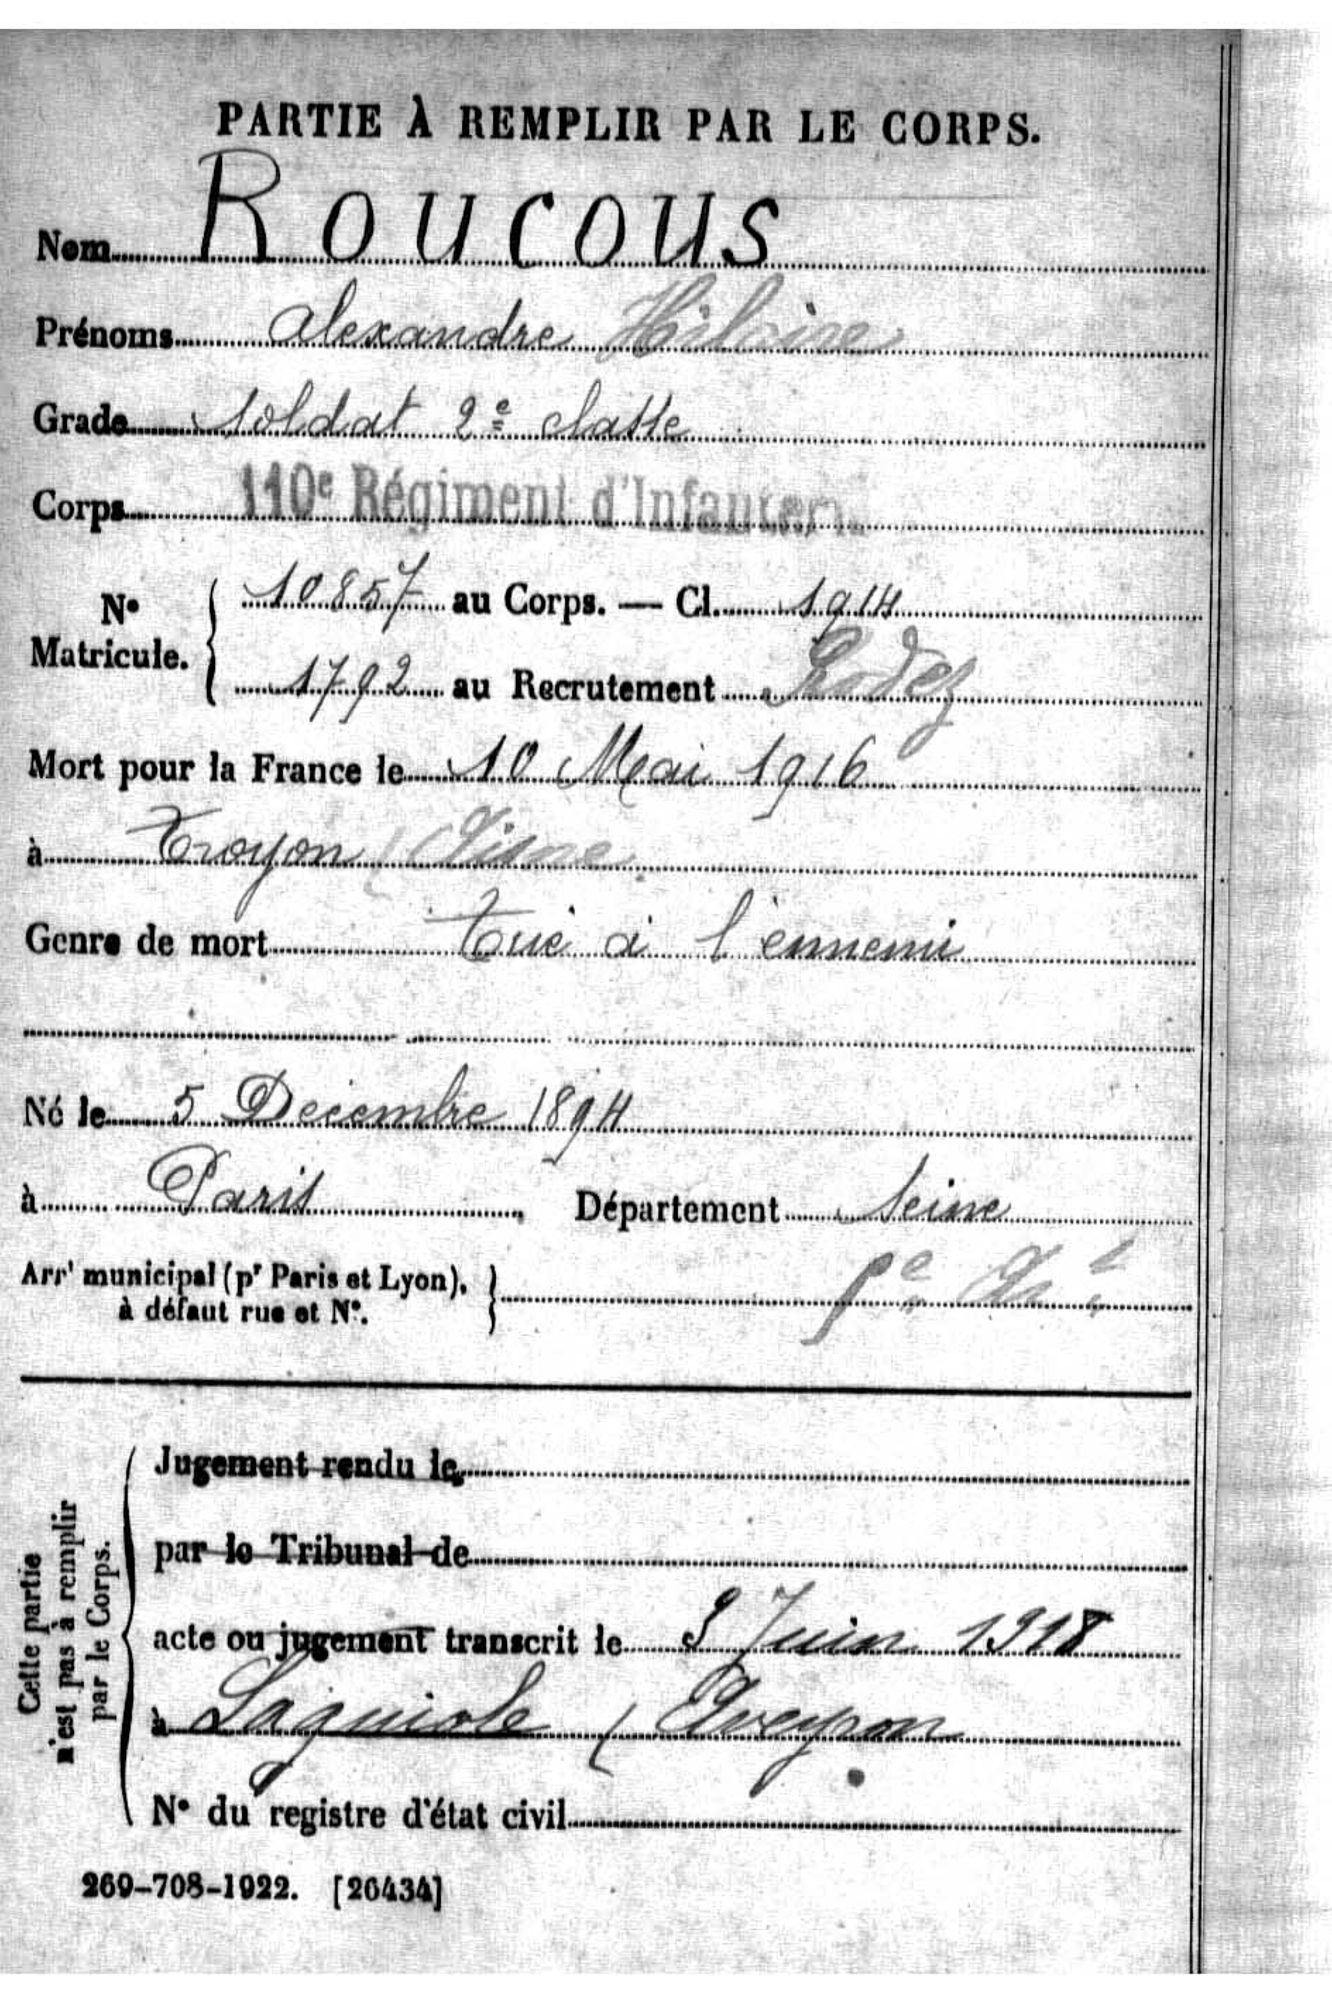 PARTIE À REMPLIR PAR LE CORPS.
Nom ROUCOUS
Prénoms Alexandre Hilaire
Grade Soldat 2e classe
Corps 110e Régiment d'Infanterie
N° Matricule. { 10857 au Corps. — Cl. 1914
1792 au Recrutement Rodez
Mort pour la France le 10 Mai 1916
à Troyon (Aisne
Genre de mort tué à l'ennemi
Né le 5 Décembre 1894
à Paris Département Seine
Arrt municipal (pr Paris et Lyon), à défaut rue et N°. }
Cette partie n'est pas à remplir par le Corps.
Jugement rendu le
par le Tribunal de
acte ou jugement transcrit le Juin 1918
à Laguiole (Aveyron
N° du registre d'état civil
269-708-1922. [26434]